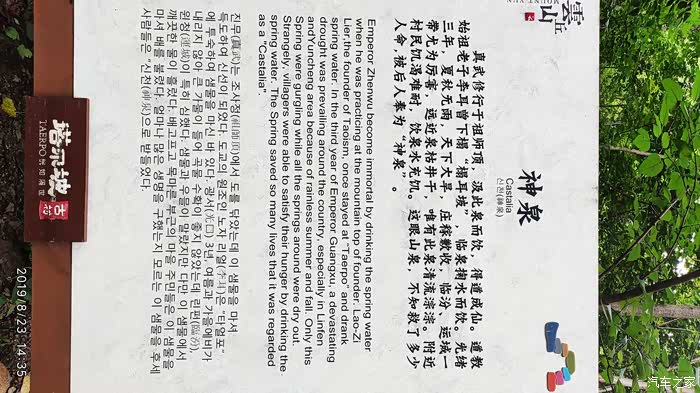 雲丘山
MOUNT YUN
神泉
Castalia
신천(神泉)
真武修行于祖师顶，汲此泉而饮，得道成仙。道教
始祖老子李耳曾下榻“榻耳坡”，临泉掬水而饮。光绪
三年，夏秋无雨，天下大旱，庄稼歉收，临汾、运城一
带尤为厉害，远近泉枯井干，唯有此泉清流淙淙。附近
村民饥渴难耐时，饮泉水充饥。这眼山泉，不知救了多少
人命，被后人奉为“神泉”。
Emperor Zhenwu become immortal by drinking the spring water
when he was practicing at the mountain top of founder. Lao-Zi
Lier,the founder of Taoism, once stayed at "Taerpo" and drank
spring water. In the third year of Emperor Guangxu, a devastating
drought was prevailing around the country, especially in Linfen
andYuncheng area because of rainless summer and fall. Only this
Spring were gurgling while all the springs around were dry out.
Strangely, villagers were able to satisfy their hunger by drinking the
spring water. The Spring saved so many lives that it was regarded
as a "Castalia".
진무(真武)는 조사정(祖師頂)에서 도를 닦았는데 이 샘물을 마셔
득도하여 신선이 되었다. 도교의 원조인 노자 리얼(李耳)은 "타얼포"
에 투숙하여 샘물을 마신 바 있다. 광서(光口) 3년, 여름과 가을에 비가
내리지 않아 큰 가물이 들어 곡물 수확이 좋지 않았는데 린펀(臨汾),
윈청(運城)이 특히 심했다. 샘물과 우물이 말랐지만 다만 이 샘물에서
깨끗한 물이 흘렀다. 배고프고 목마른 부근의 마을 주민들은 이 샘물을
마셔 배를 불렸다. 얼마나 많은 생명을 구했는지 모르는 이 샘물을 후세
사람들은 "신천(神泉)"으로 받들었다.
塔尔坡
TAERPO
古村
2019/8/23 14:35
汽车之家